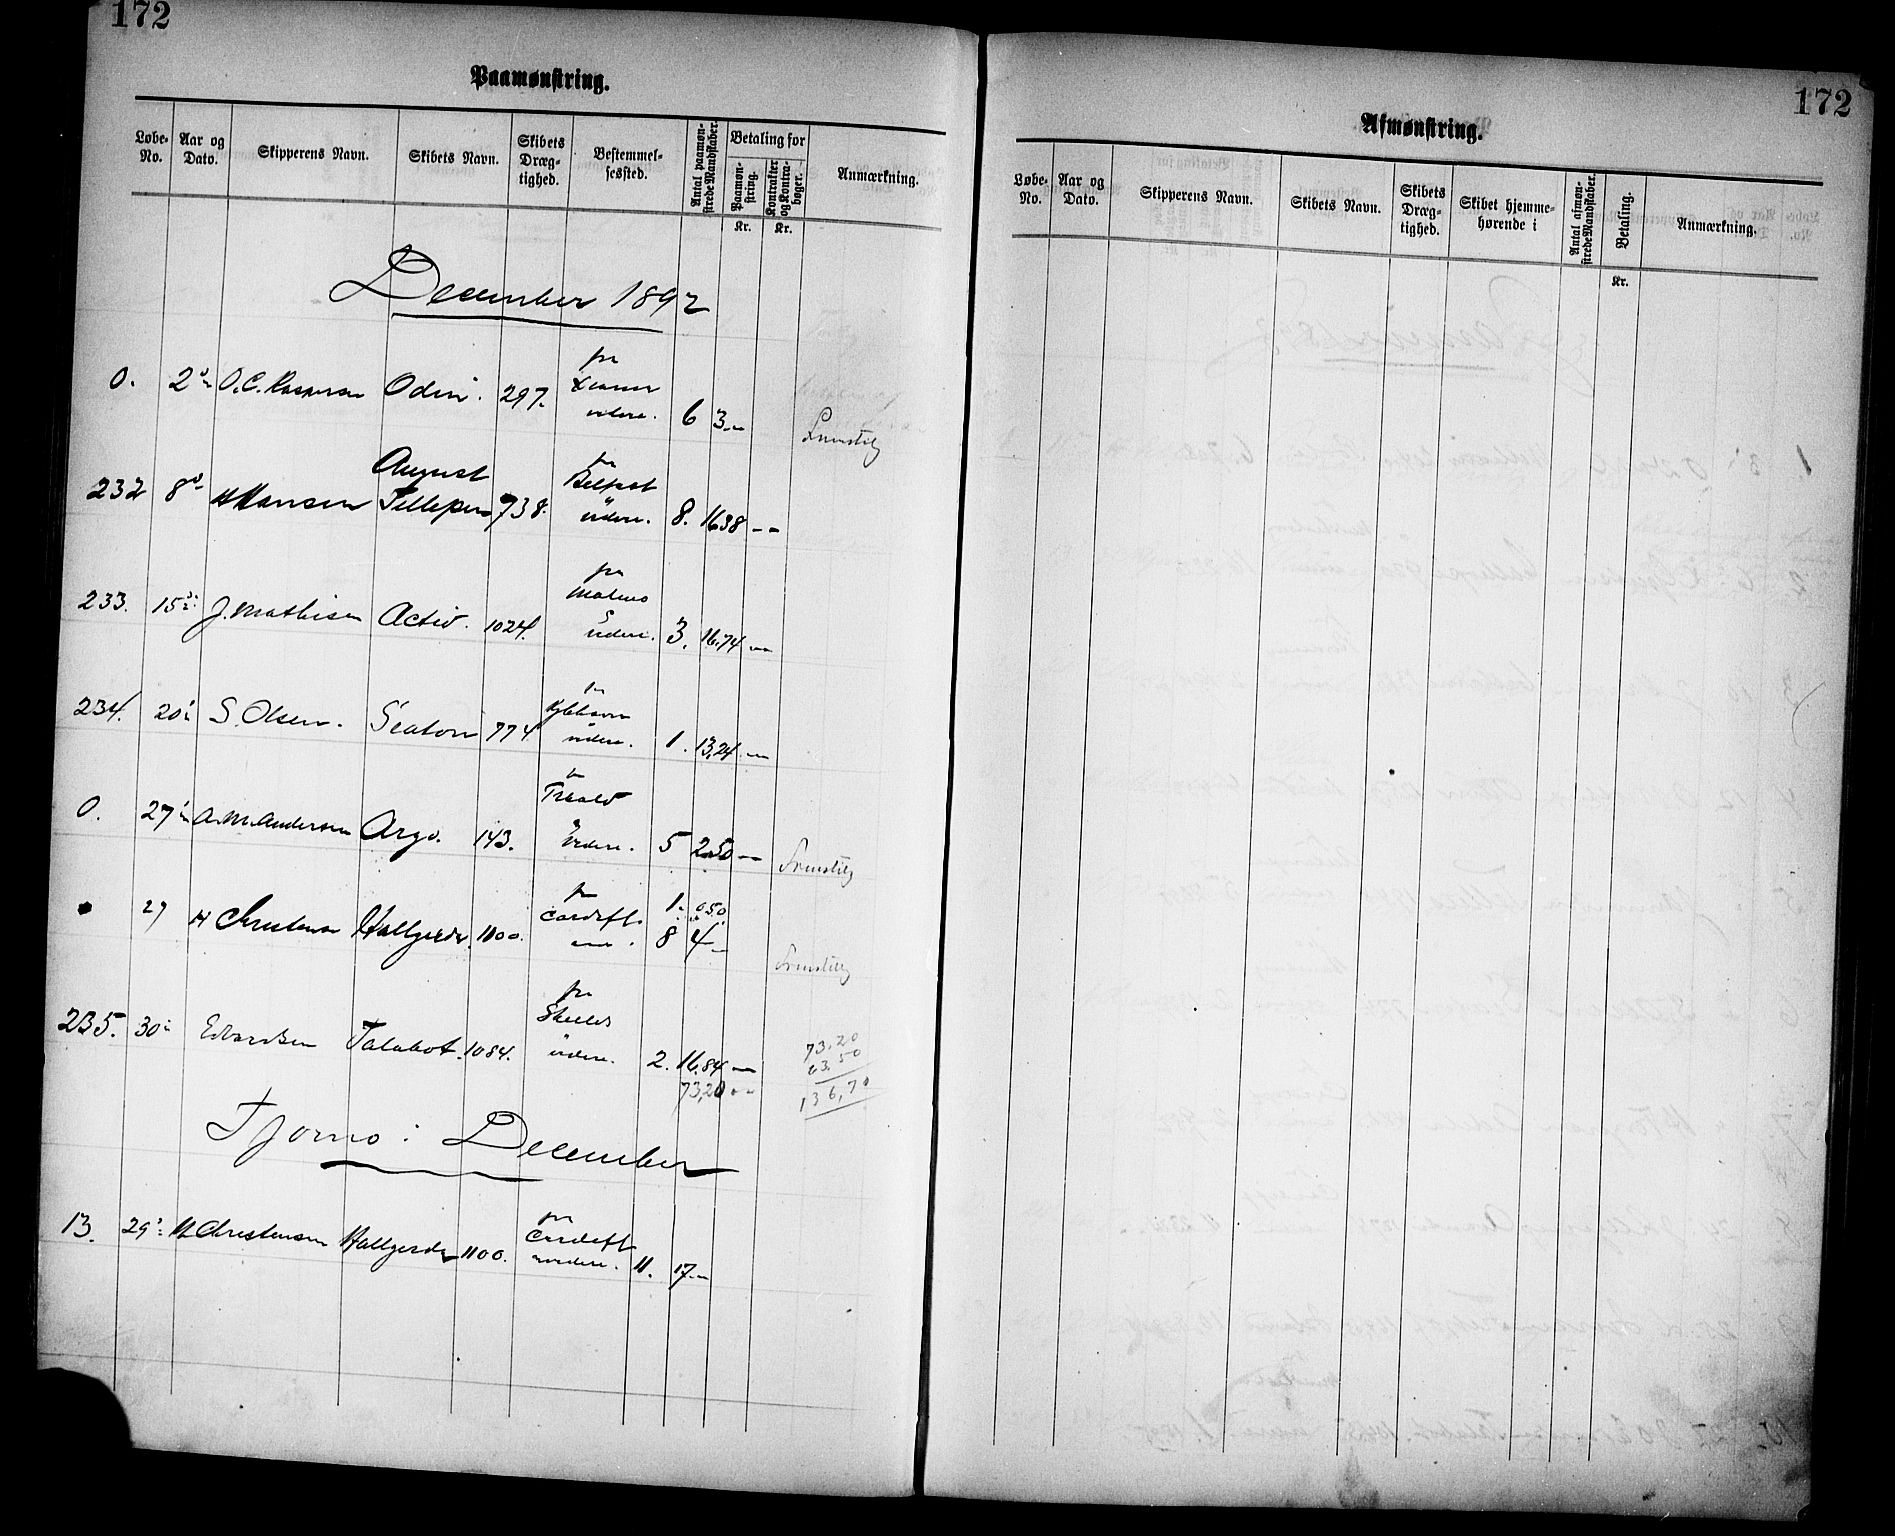 172
Paamønstring.
Løbe-No. Aar og Dato. Skipperens Navn. Skibets Navn. Skibets Dræg-tighed. Bestemmel-sessted. Antal paamøn-strede Mandskaber. Betaling for Paamøn-string. Kr. Kontrakter og Kontra-bøger. Kr. Anmærkning.
December 1892
fra
0. 2 O. C. Odin. 297. videre. 6 3.
August fra
232 8 H Hansen 738. Belfast videre. 8. 16 38 --
fra
233. 15 J. Mathisen Activ. 1024. Malmø videre. 3. 16.74 --
234. 20 S. Olsen. Seaton 774 videre. 1. 13,24 --
0. 27 A. M. Andersen Argo. 143. videre. 5 2.50 --
fra 1. 0.50
27 H Christensen Hallgerda 1100. Cardiff 8 4
fra
235. 30 Edvardsen Talabot. 1084. Shields videre. 2. 16.84 --
73,20 --
73.20
63.50
136,70
Tjømø i December
fra
13. 29 H Christensen Hallgerda 1100. Cardiff videre. 11. 17.
172
Afmønstring.
Løbe-No. Aar og Dato. Skipperens Navn. Skibets Navn. Skibets Dræg-tighed. Skibet hjemme-hørende i Antal afmøn-strede Mandskaber. Betaling. Kr. Anmærkning.